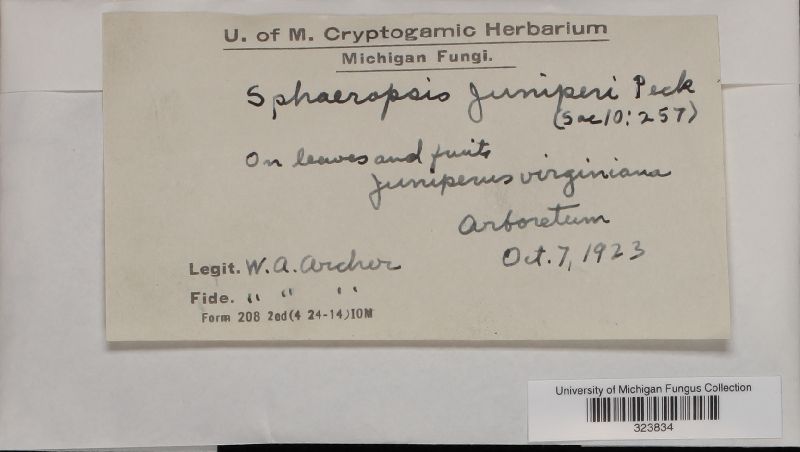 U. of M. Cryptogamic Herbarium
Michigan Fungi.
Sphaeropsis Juniperi Peck
(Sac 10: 257)
On leaves and fruits
Juniperus virginiana
Arboretum
Oct. 7, 1923
Legit. W. A. Archer
Fide. " " "
Form 208 2ed(4 24-14)10M
University of Michigan Fungus Collection
323834